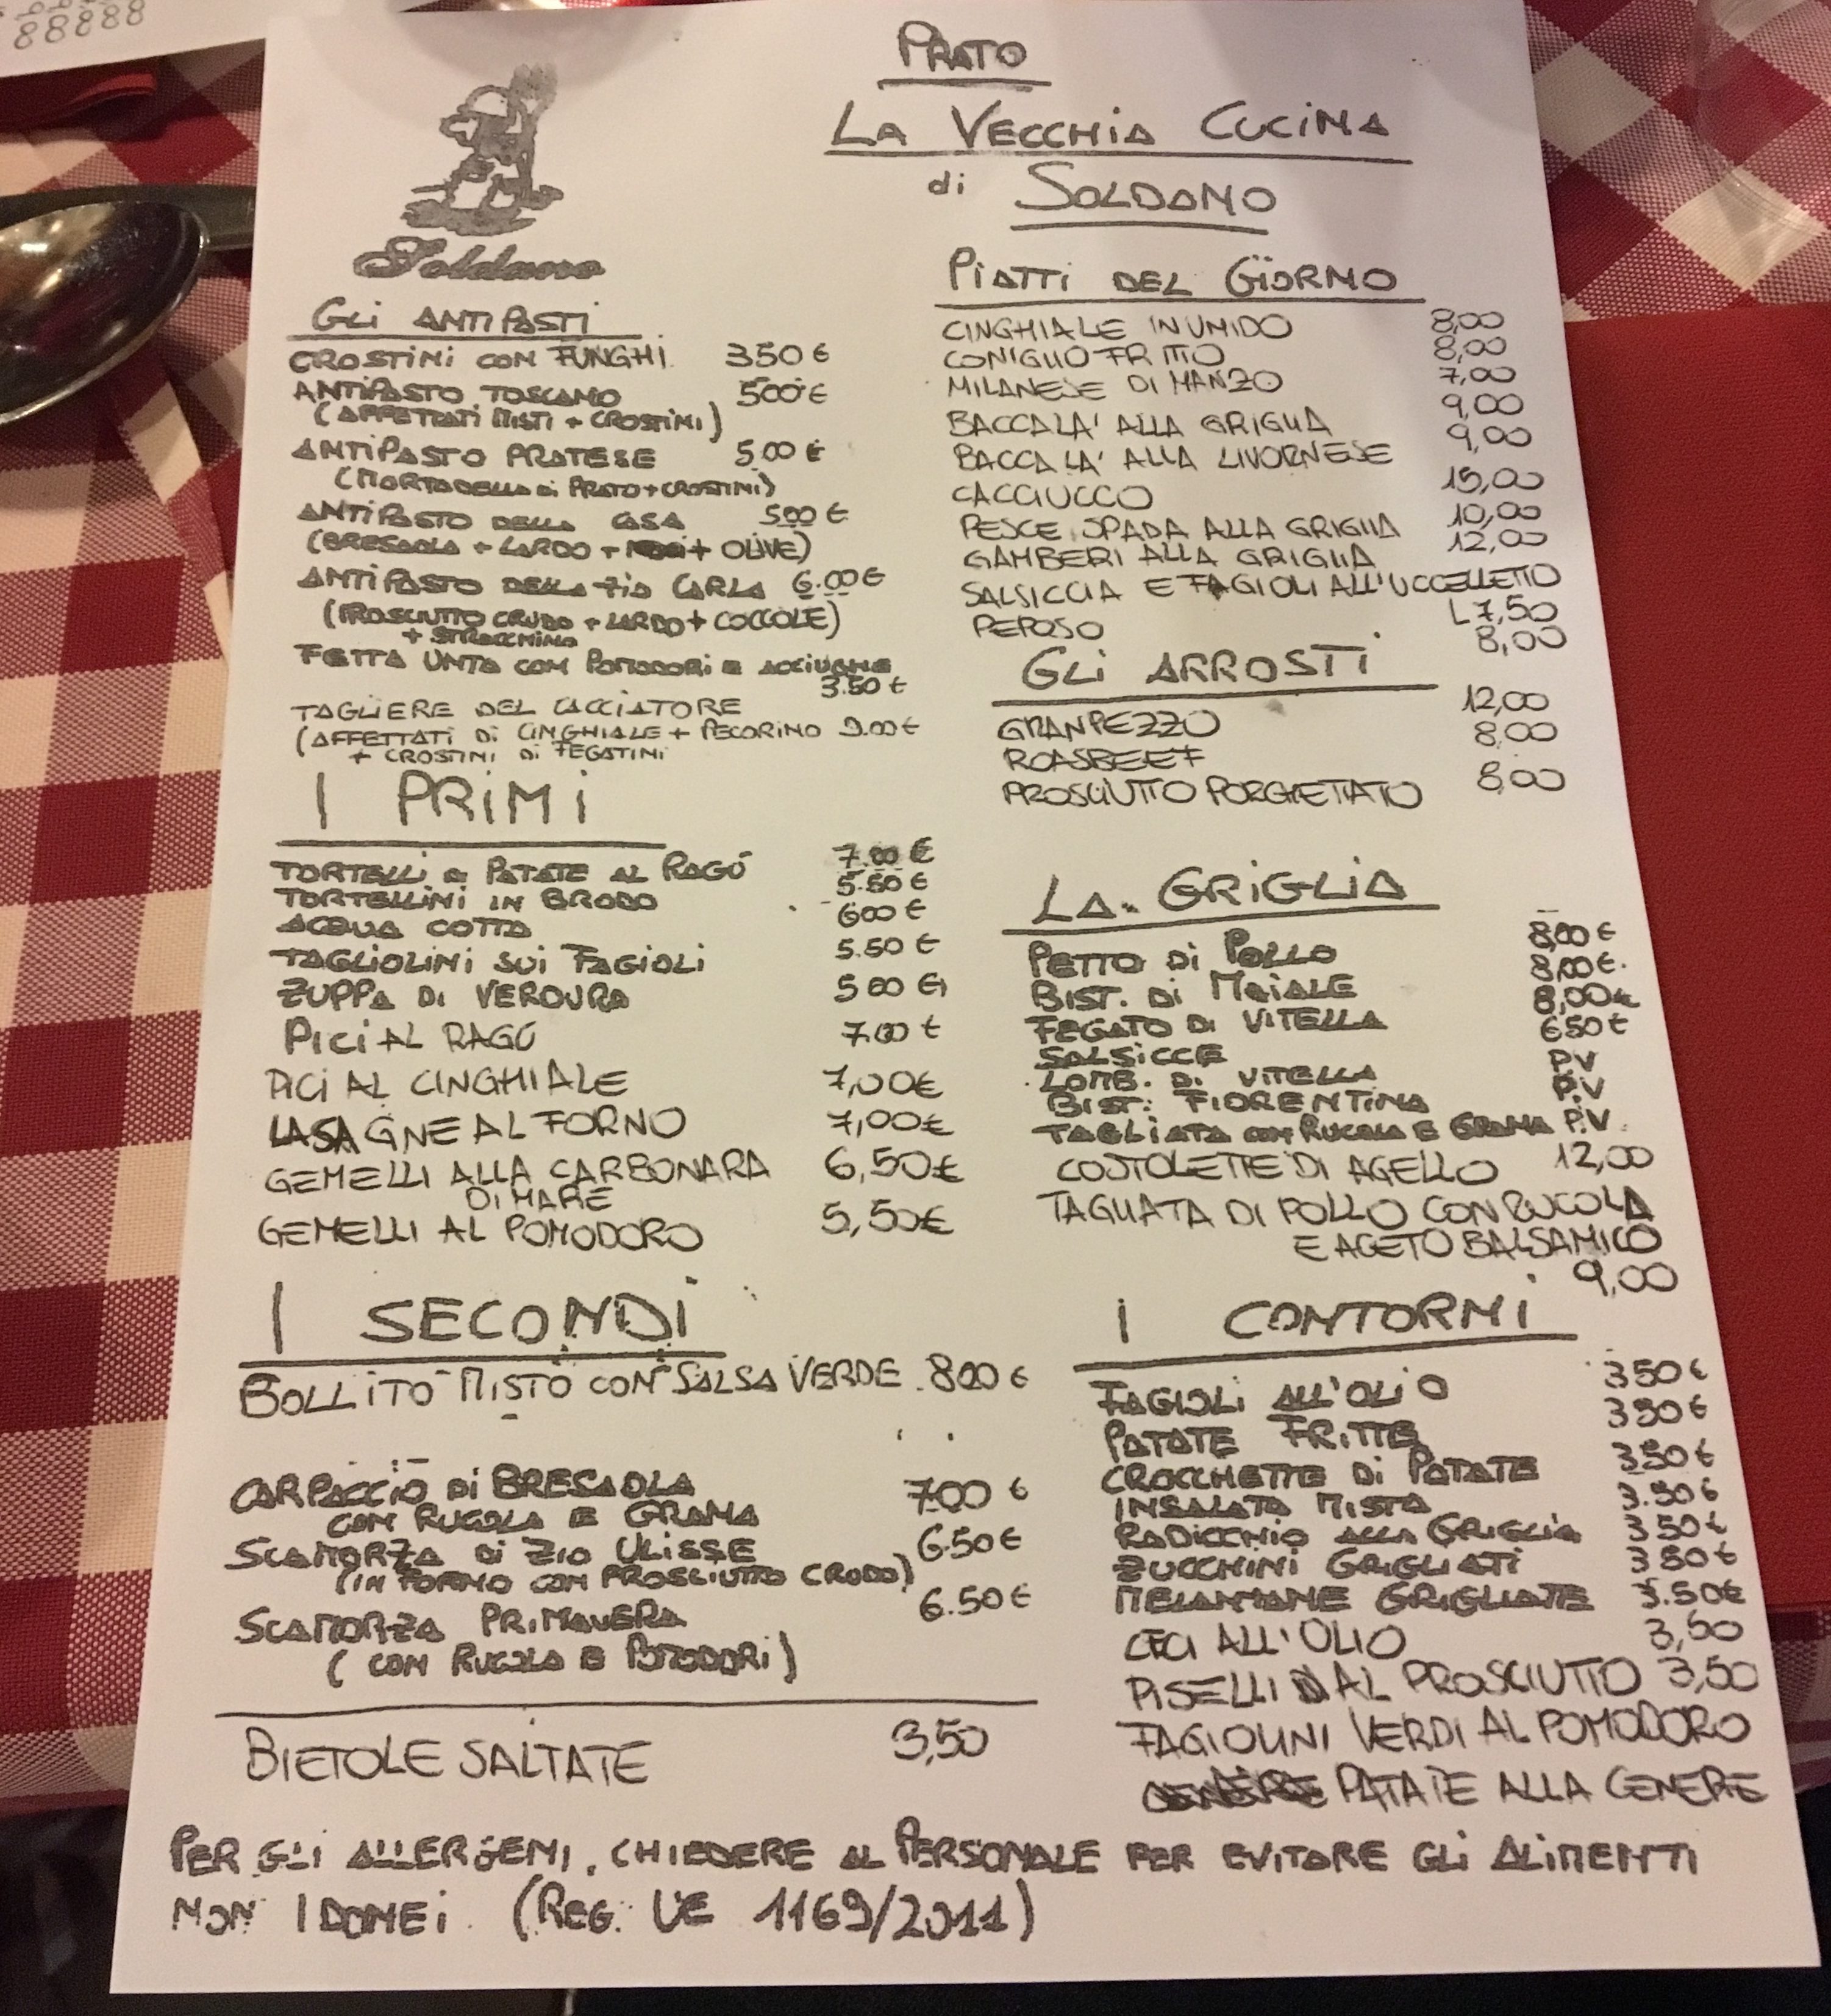 88888
PRATO
LA VECCHIA CUCINA
di SOLDANO
Soldano
GLI ANTIPASTI
CROSTINI CON FUNGHI 350 €
ANTIPASTO TOSCANO 500 €
(AFFETTATI MISTI + CROSTINI)
ANTIPASTO PRATESE 5.00 €
(MORTADELLA DI PRATO + CROSTINI)
ANTIPASTO DELLA CASA 500 €
(BRESAOLA + LARDO + + OLIVE)
ANTIPASTO DELLA ZIA CARLA 6.00 €
(PROSCIUTTO CRUDO + LARDO + COCCOLE)
+ STRACCHINO
FETTA UNTA CON POMODORI E ACCIUGHE
3.50 €
TAGLIERE DEL CACCIATORE
(AFFETTATI DI CINGHIALE + PECORINO 9.00 €
+ CROSTINI DI FEGATINI
I PRIMI
TORTELLI DI PATATE AL RAGÚ 7.00 €
TORTELLINI IN BRODO 5.50 €
ACQUA COTTA 600 €
TAGLIOLINI SUI FAGIOLI 5.50 €
ZUPPA DI VERDURA 500 €
PICI AL RAGÚ 7.00 €
PICI AL CINGHIALE 7,00€
LASAGNE AL FORNO 7,00€
GEMELLI ALLA CARBONARA 6,50€
DI MARE
GEMELLI AL POMODORO 5,50€
I SECONDI
BOLLITO MISTO CON SALSA VERDE 800 €
CARPACCIO DI BRESAOLA 700 €
CON RUCOLA E GRANA
SCAMORZA DI ZIO ULISSE 6.50 €
(IN FORNO CON PROSCIUTTO CRUDO)
SCAMORZA PRIMAVERA 6.50 €
(CON RUCOLA E POMODORI)
BIETOLE SALTATE 3,50
PIATTI DEL GIORNO
CINGHIALE IN UMIDO 8,00
CONIGLIO FRITTO 8,00
MILANESE DI MANZO 7,00
BACCALA' ALLA GRIGLIA 9,00
BACCALA' ALLA LIVORNESE 9,00
CACCIUCCO 15,00
PESCE SPADA ALLA GRIGLIA 10,00
GAMBERI ALLA GRIGLIA 12,00
SALSICCIA E FAGIOLI ALL'UCCELLETTO
7,50
PEPOSO 8,00
GLI ARROSTI
GRANPEZZO 12,00
ROASBEEF 8,00
PROSCIUTTO PORCHETTATO 8,00
LA GRIGLIA
PETTO DI POLLO 8,00 €
BIST. DI MAIALE 8,00 €
FEGATO DI VITELLA 8,00 €
SALSICCE 650 €
LOMB. DI VITELLA P.V
BIST. FIORENTINA P.V
TAGLIATA CON RUCOLA E GRANA P.V.
COSTOLETTE DI AGELLO 12,00
TAGLIATA DI POLLO CON RUCOLA
E ACETO BALSAMICO
9,00
I CONTORNI
FAGIOLI ALL'OLIO 350 €
PATATE FRITTE 350 €
CROCCHETTE DI PATATE 350 €
INSALATA MISTA 3.50 €
RADICCHIO ALLA GRIGLIA 350 €
ZUCCHINI GRIGLIATI 350 €
MELANZANE GRIGLIATE 3.50€
CECI ALL'OLIO 3,50
PISELLI AL PROSCIUTTO 3,50
FAGIOLINI VERDI AL POMODORO
PATATE ALLA CENERE
PER GLI ALLERGENI, CHIEDERE AL PERSONALE PER EVITARE GLI ALIMENTI
NON IDONEI. (REG. UE 1169/2011)